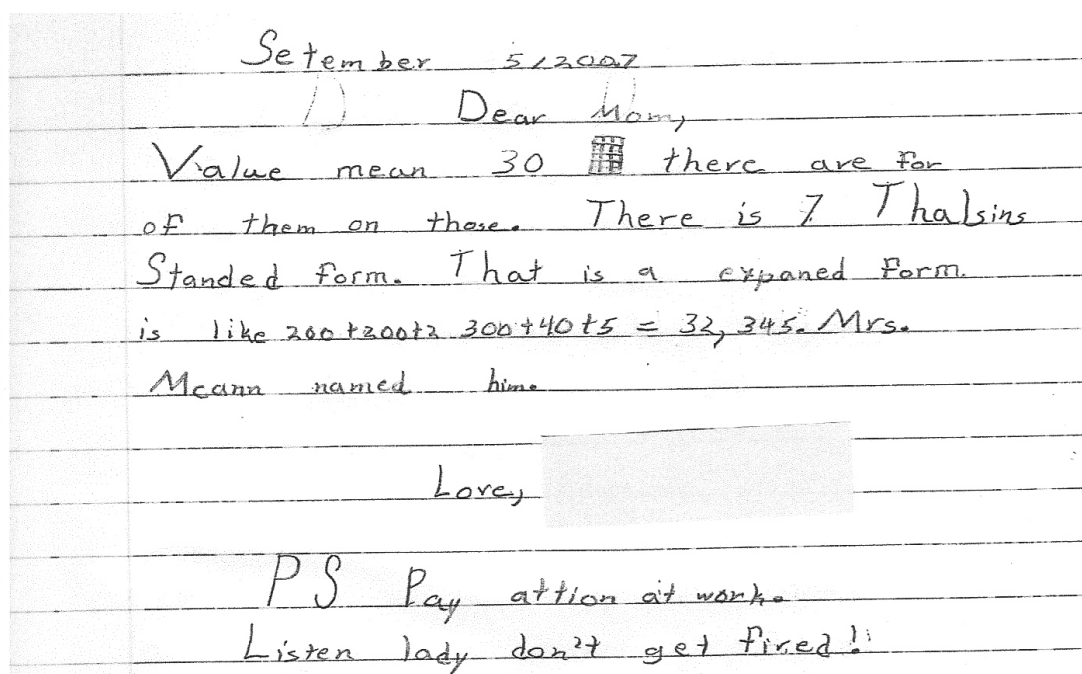 Setember 5/2007
Dear Mom,
Value mean 30 there are for
of them on those. There is 7 Thalsins
Standed form. That is a expaned form.
is like 200+200+2 300+40+5 = 32,345. Mrs.
Mcann named him.
Love,
PS Pay attion at work.
Listen lady don't get fired!!